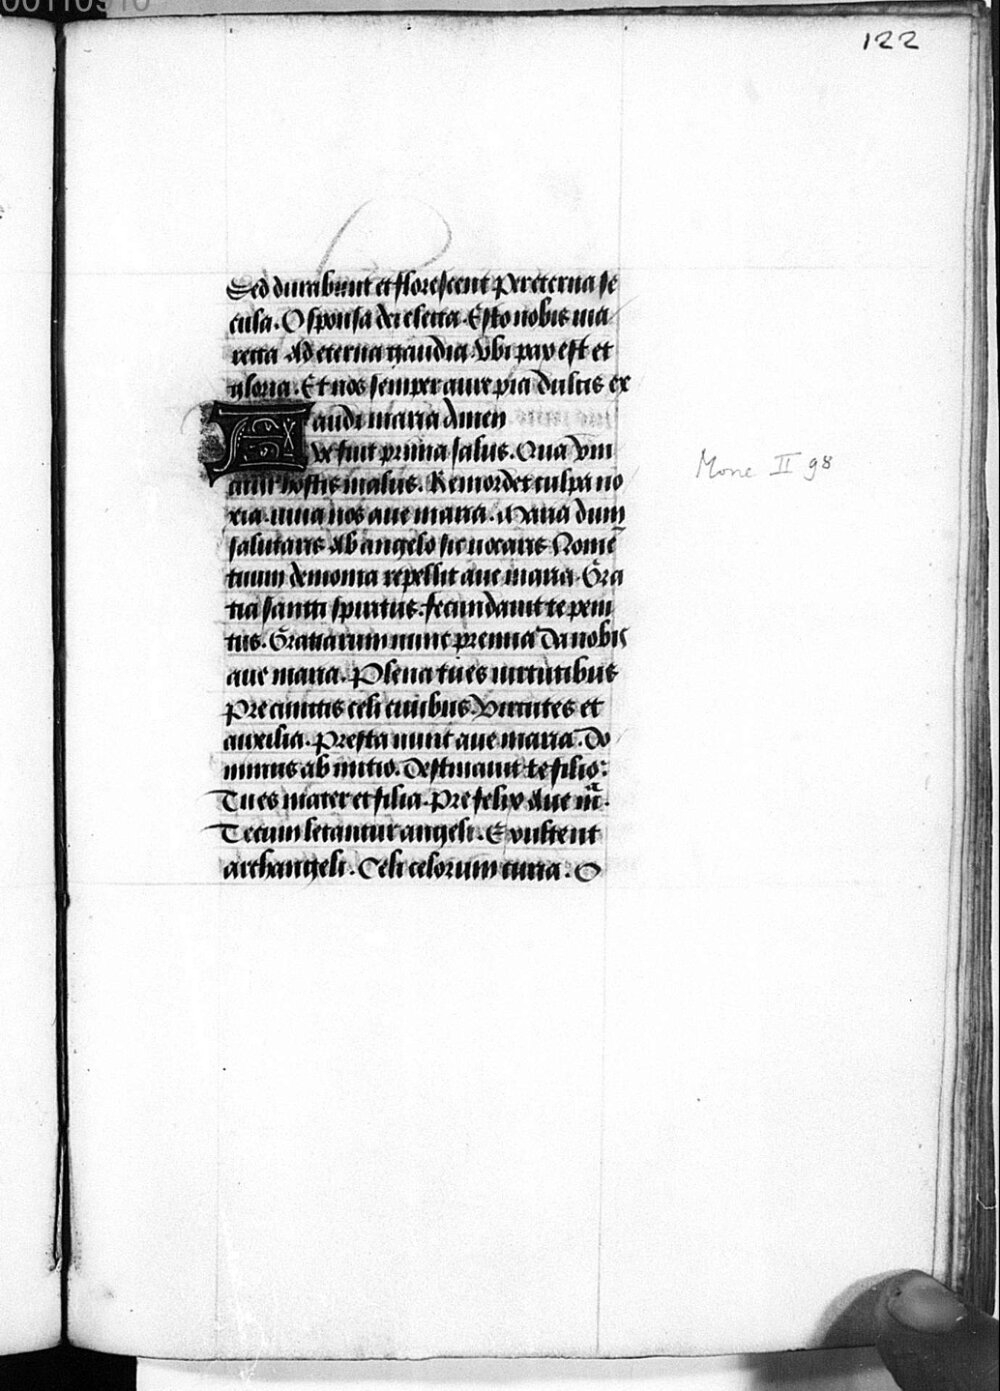 00110910
122
Sed durabunt et florescent Per eterna se
cula. O sponsa dei electa. Esto nobis via
recta Ad eterna gaudia. Vbi pax est et
gloria. Et nos semper aure pia Dulcis ex
audi maria Amen
Ave fuit prima salus. Qua vin
citur hostis malus. Remordet culpa no
xia. iuua nos aue maria. Maria dum
salutaris Ab angelo sic vocaris Nomē
tuum demonia repellit aue maria. Gra
tia sancti spiritus. fecundauit te peni
tus. Gratiarum nunc premia Da nobis
aue maria. Plena tu es virtutibus
Pre cunctis celi ciuibus. Virtutes et
auxilia. Presta nunc aue maria. Do
minus ab initio. Destinauit te filio:
Tu es mater et filia. Prefelix Aue mª.
Tecum letantur angeli. Exultent
archangeli. Celi celorum curia. O
Mone II 98